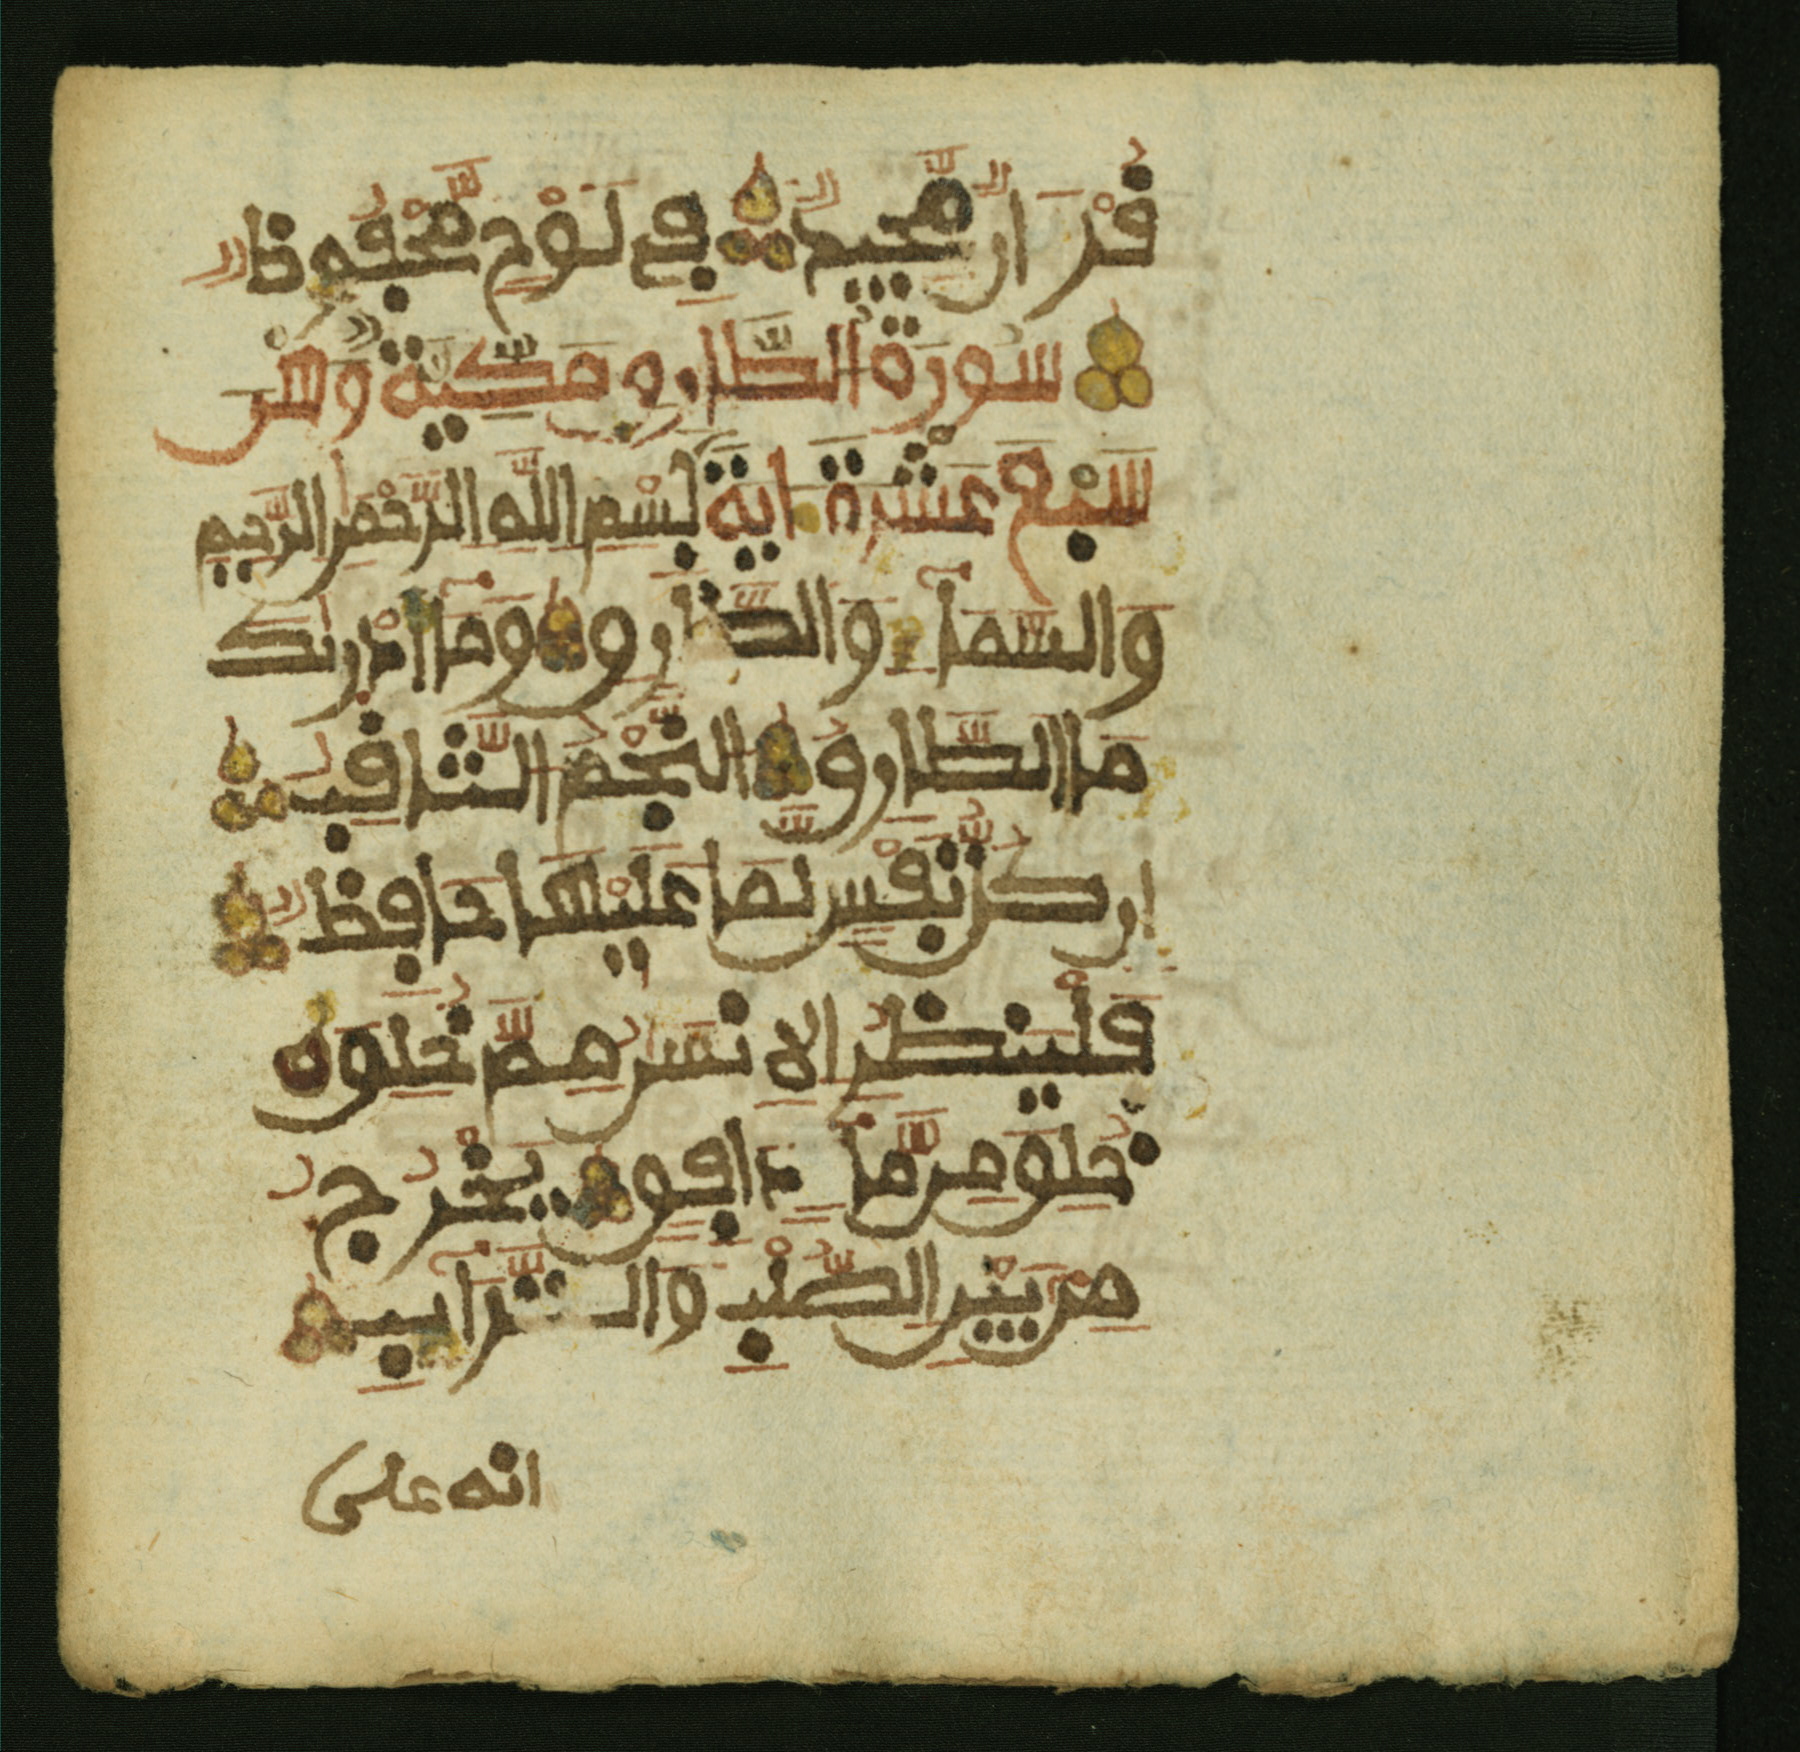 قُرْءَانٌ مَّجِيدٌ فِي لَوْحٍ مَّحْفُوظٌ
سُورَةُ الطَّارِقِ مَكِّيَّةٌ وَهِيَ
سَبْعَ عَشْرَةَ ايَةً بِسْمِ اللَّهِ الرَّحْمَٰنِ الرَّحِيمِ
وَالسَّمَآءِ وَالطَّارِقِ وَمَآ أَدْرَىٰكَ
مَا الطَّارِقُ النَّجْمُ الثَّاقِبُ
إِن كُلُّ نَفْسٍ لَّمَا عَلَيْهَا حَافِظٌ
فَلْيَنظُرِ الِانسَٰنُ مِمَّ خُلِقَ
خُلِقَ مِن مَّآءٍ دَافِقٍ يَخْرُجُ
مِنۢ بَيْنِ الصُّلْبِ وَالتَّرَآئِبِ
انه على